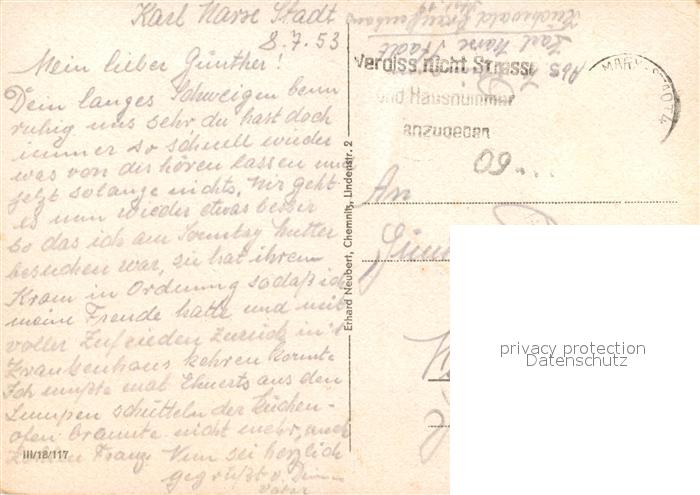 Karl Marx Stadt
8.7.53
Mein lieber Günther!
Dein langes Schweigen beun
ruhig uns sehr, du hast doch
immer so schnell wieder
was von dir hören lassen und
jetzt solange nichts. Mir geht
es nun wieder etwas besser
so das ich am Sonntag Mutter
besuchen war, sie hat ihren
Kram in Ordnung sodaß ich
meine Freude hatte und mit
voller Zufrieden zurück in's
Krankenhaus kehren konnte
Ich mußte mal Ehnerts aus den
Lumpen schütteln der Küchen-
ofen brannte nicht mehr,
Franz. Nun sei herzlich
gegrüßt v. Dein
Vater
III/18/117
Erhard Neubert, Chemnitz, Lindenstr. 2
Abs.
Karl Marx Stadt
Krankenhaus
Vergiss nicht Strasse
und Hausnummer
anzugeben
MARX-STADT 4
60
An
Gün
privacy protection
Datenschutz